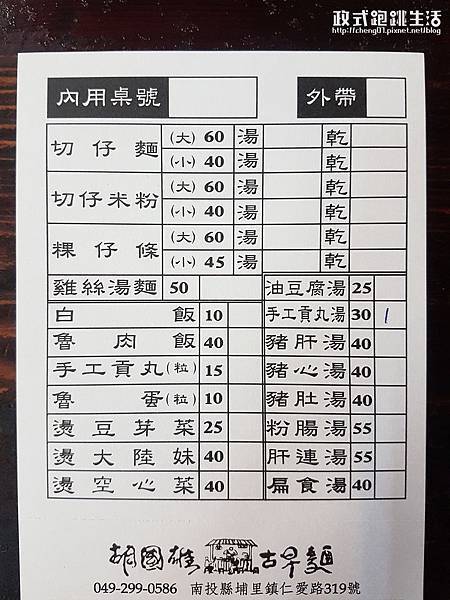 政式跑跳生活
http://cheng01.pixnet.net/blog
內用桌號 外帶
切仔麵 (大) 60 湯 乾
(小) 40 湯 乾
切仔米粉 (大) 60 湯 乾
(小) 40 湯 乾
粿仔條 (大) 60 湯 乾
(小) 45 湯 乾
雞絲湯麵 50 油豆腐湯 25
白飯 10 手工貢丸湯 30 1
魯肉飯 40 豬肝湯 40
手工貢丸(粒) 15 豬心湯 40
魯蛋(粒) 10 豬肚湯 40
燙豆芽菜 25 粉腸湯 55
燙大陸妹 40 肝連湯 55
燙空心菜 40 扁食湯 40
胡國雄 古早麵
049-299-0586 南投縣埔里鎮仁愛路319號